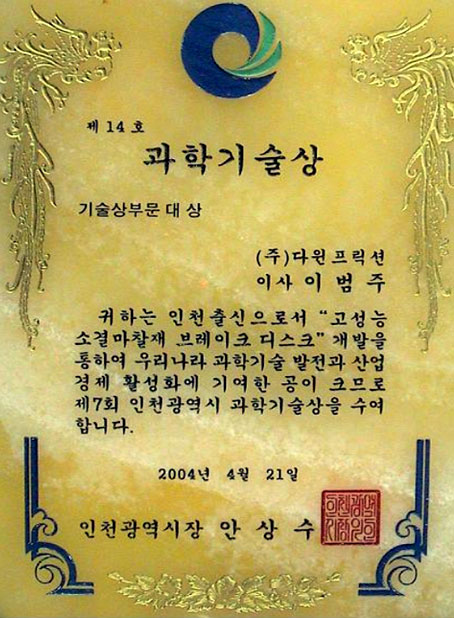 제 14 호
과학기술상
기술상부문 대 상
(주)다윈프릭션
이사 이 범 주
귀하는 인천출신으로서 "고성능
소결마찰재 브레이크 디스크" 개발을
통하여 우리나라 과학기술 발전과 산업
경제 활성화에 기여한 공이 크므로
제7회 인천광역시 과학기술상을 수여
합니다.
2004년 4월 21일
인천광역시장 안 상 수